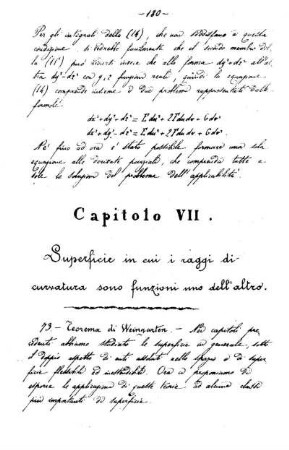 — 180 —
Per gli integrali della (16), che non soddisfano a questa
condizione si vedrebbe facilmente che il secondo membro del-
la (15) può essere messo che alla forma dx²+dy²+dz² all'al-
tra dx²+dy²-dz² con x,y,z funzioni reali, quindi la equazione
(16) comprende insieme i due problemi rappresentati dalle
formole:
dx²+dy²+dz² = Edu²+2Fdudv+Gdv²
dx²+dy²-dz² = Edu²+2Fdudv+Gdv².
Nè fino ad ora è stato possibile formare una sola
equazione alle derivate parziali, che comprenda tutte e
sole le soluzioni del problema dell'applicabilità.
Capitolo VII.
Superficie in cui i raggi di
curvatura sono funzioni uno dell'altro.
73 – Teorema di Weingarten – Nei capitoli pre-
cedenti abbiamo studiato le superficie in generale, sotto
il doppio aspetto di enti esistenti nello spazio e di super-
ficie flessibili ed inestendibili. Ora ci proponiamo di
esporre le applicazioni di queste teorie ad alcune classi
più importanti di superficie.